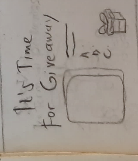 It's Time
For Giveaway
A
B
C